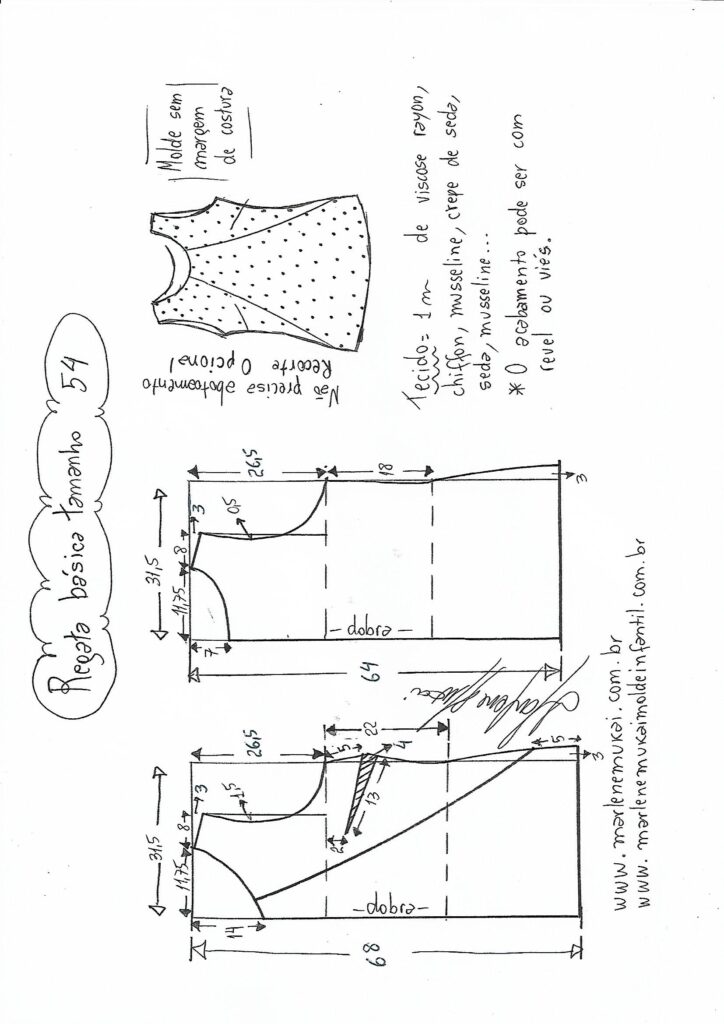 Regata básica tamanho 54
Molde sem
margem
de costura
Não precisa abotoamento
Recorte Opcional
Tecido = 1 m de viscose rayon,
chiffon, musseline, crepe de seda,
seda, musseline...
* O acabamento pode ser com
revel ou viés.
31,5
11,75
8
3
1,5
26,5
14
5
22
4
13
2
5
3
-dobra-
68
31,5
11,75
8
3
0,5
26,5
7
18
3
-dobra-
64
Marlene Mukai
www.marlenemukai.com.br
www.marlenemukaimoldeinfantil.com.br